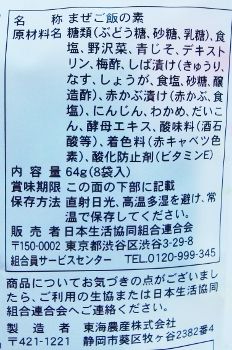 名称 まぜご飯の素
原材料名 糖類(ぶどう糖、砂糖、乳糖)、食
塩、野沢菜、青じそ、デキスト
リン、梅酢、しば漬け(きゅうり、
なす、しょうが、食塩、砂糖、醸
造酢)、赤かぶ漬け(赤かぶ、食
塩)、にんじん、わかめ、だいこ
ん、酵母エキス、酸味料(酒石
酸等)、着色料(赤キャベツ色
素)、酸化防止剤(ビタミンE)
内容量 64g(8袋入)
賞味期限 この面の下部に記載
保存方法 直射日光、高温多湿を避け、常
温で保存してください。
販売者 日本生活協同組合連合会
〒150-0002 東京都渋谷区渋谷3-29-8
組合員サービスセンター TEL.0120-999-345
商品についてお気づきの点がございまし
たら、ご利用の生協または日本生活協同
組合連合会へご連絡ください。
製造者 東海農産株式会社
〒421-1221 静岡市葵区牧ヶ谷2382番4